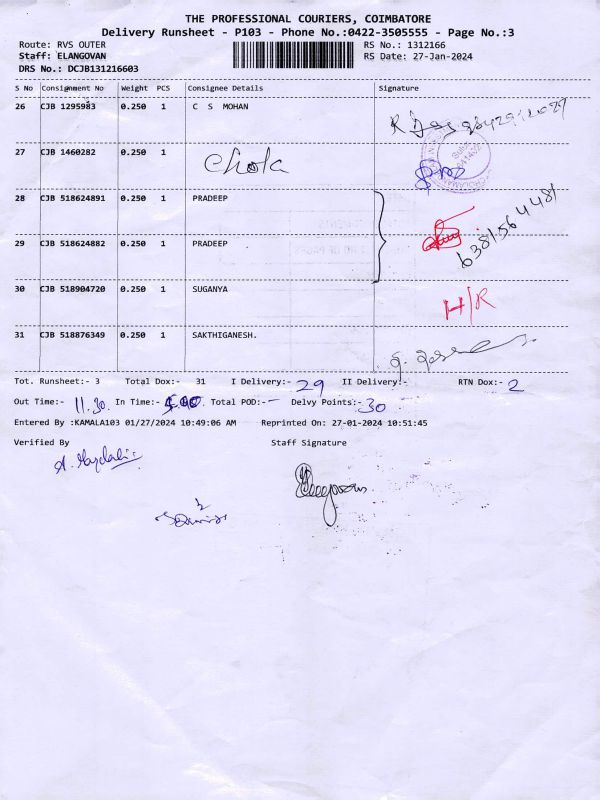 THE PROFESSIONAL COURIERS, COIMBATORE
Delivery Runsheet - P103 - Phone No.:0422-3505555 - Page No.:3
Route: RVS OUTER RS No.: 1312166
Staff: ELANGOVAN RS Date: 27-Jan-2024
DRS No.: DCJB131216603
S No Consignment No Weight PCS Consignee Details Signature
26 CJB 1295983 0.250 1 C S MOHAN
27 CJB 1460282 0.250 1 Chola
28 CJB 518624891 0.250 1 PRADEEP
6381564481
29 CJB 518624882 0.250 1 PRADEEP
30 CJB 518904720 0.250 1 SUGANYA H/R
31 CJB 518876349 0.250 1 SAKTHIGANESH.
Tot. Runsheet:- 3 Total Dox:- 31 I Delivery:- 29 II Delivery:- RTN Dox:- 2
Out Time:- 11.30. In Time:- Total POD:-- Delvy Points:- 30
Entered By :KAMALA103 01/27/2024 10:49:06 AM Reprinted On: 27-01-2024 10:51:45
Verified By Staff Signature